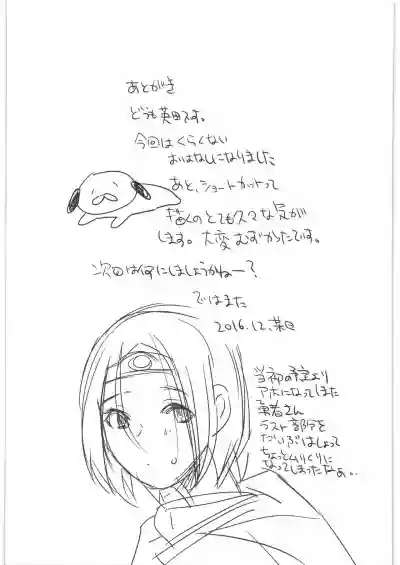 あとがき
どうも英田です。
今回はくらくない
おはなしになりました
あと、ショートカットって
描くのとても久々な気が
します。大変むずかったです。
次回は何にしましょうかねー？
ではまた
2016.12.某日
当初の予定より
アホになってしまた
勇者さん
ラスト部分を
だいぶはしょって
ちょっとムリくりに
なってしまったなぁ...